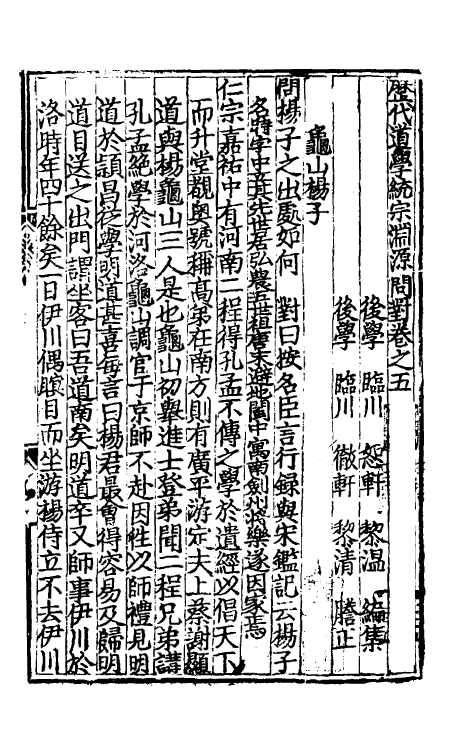 歷代道學統宗淵源問對卷之五
後學　臨川　恕軒　黎溫　編集
後學　臨川　徹軒　黎清　謄正
龜山楊子
問楊子之出處如何　對曰按名臣言行録與宋鑑記云楊子
名時字中立其先世居弘農五世祖唐末避地閩中寓南劍州將樂遂因家焉
仁宗嘉祐中有河南二程得孔孟不傳之學於遺經以倡天下
而升堂覩奧號稱髙弟在南方則有廣平游定夫上蔡謝顯
道與楊龜山三人是也龜山初舉進士登第聞二程兄弟講
孔孟絶學於河洛龜山調官于京師不赴因徃以師禮見明
道於頴昌從學明道甚喜每言曰楊君最會得容易及歸明
道目送之出門謂坐客曰吾道南矣明道卒又師事伊川於
洛時年四十餘矣一日伊川偶瞑目而坐游楊侍立不去伊川